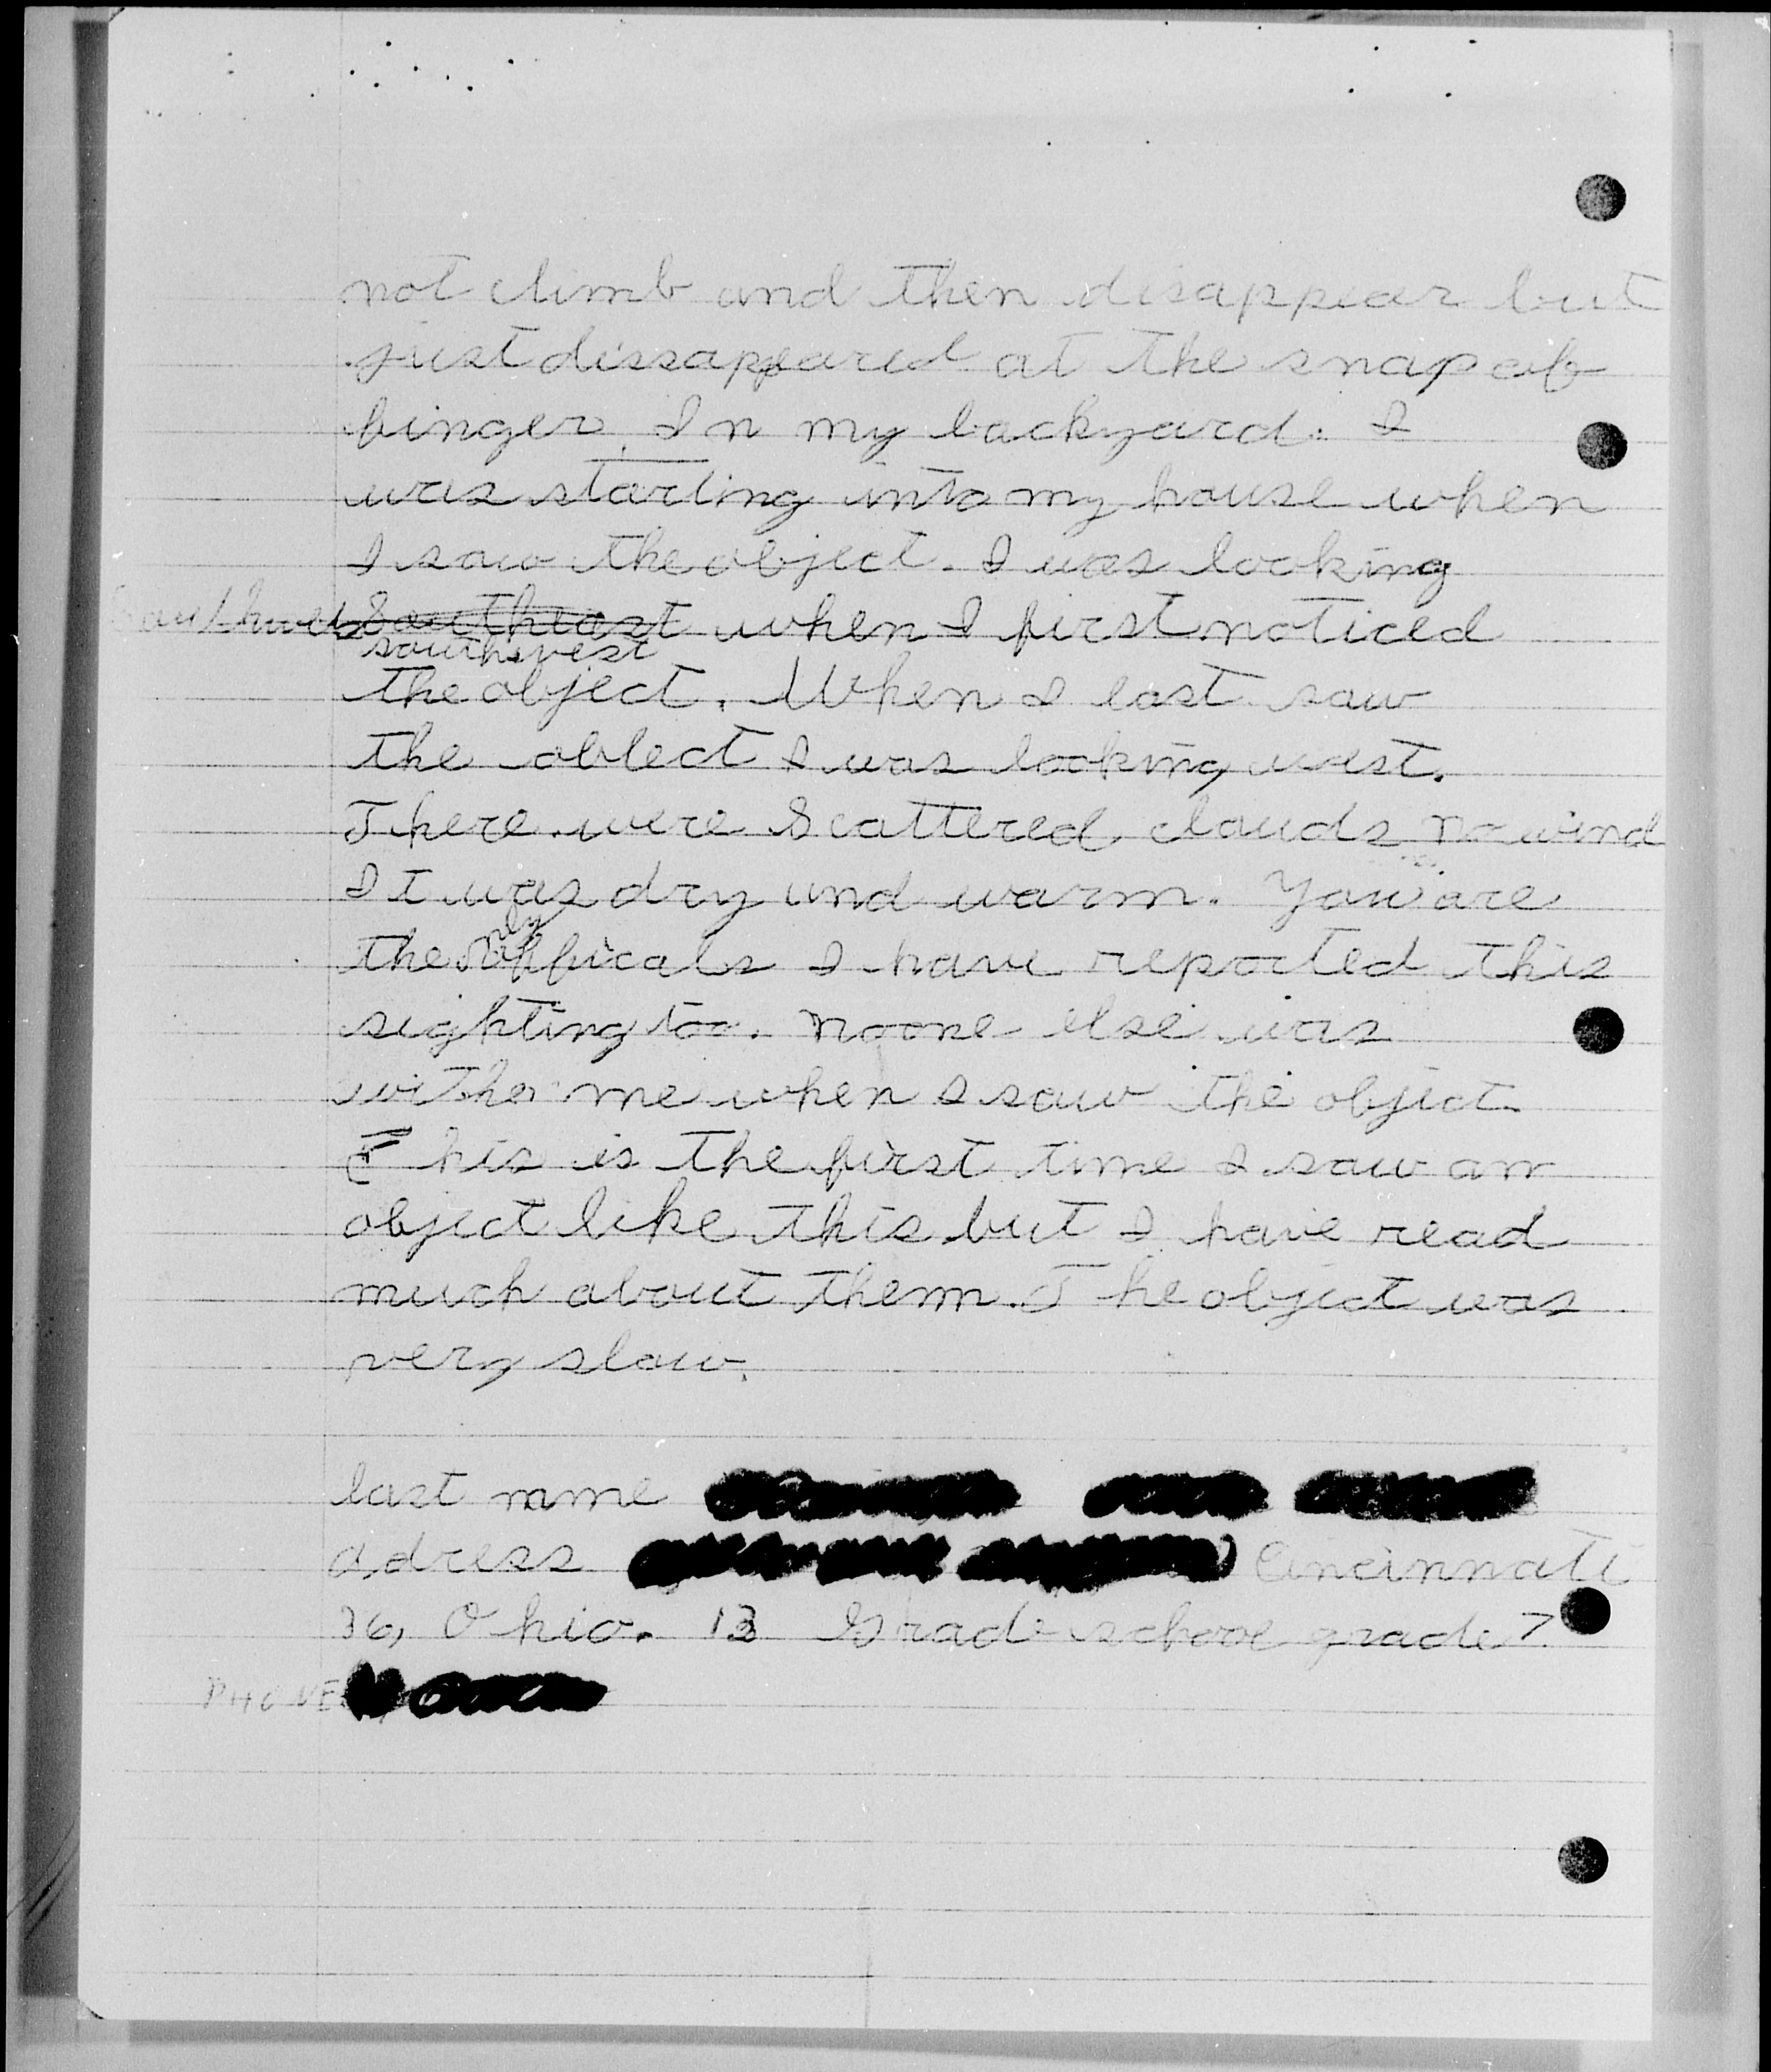 not climb and then disappear but
just dissappeared at the snap of
finger. In my backyard. I
was starting into my house when
I saw the object. I was looking
Southwest Southeast when I first noticed
southwest
the object. When I last saw
the oblect I was looking west.
There were Scattered clouds no wind
It was dry and warm. You are
the only officals I have reported this
sighting too. noone else was
with me when I saw the object.
This is the first time I saw an
object like this but I have read
much about them. The object was
very slow.
last name
adress Cincinnati
36, Ohio. 13 Grade school grade 7
PHONE